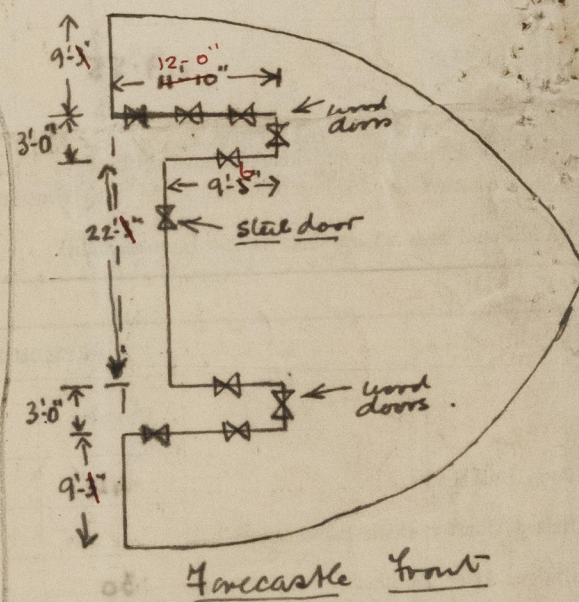 12'-0"
11'-10"
wood
doors
3'-0"
9'-5"
6
steel door
wood
doors.
3'-0"
Forecastle Front